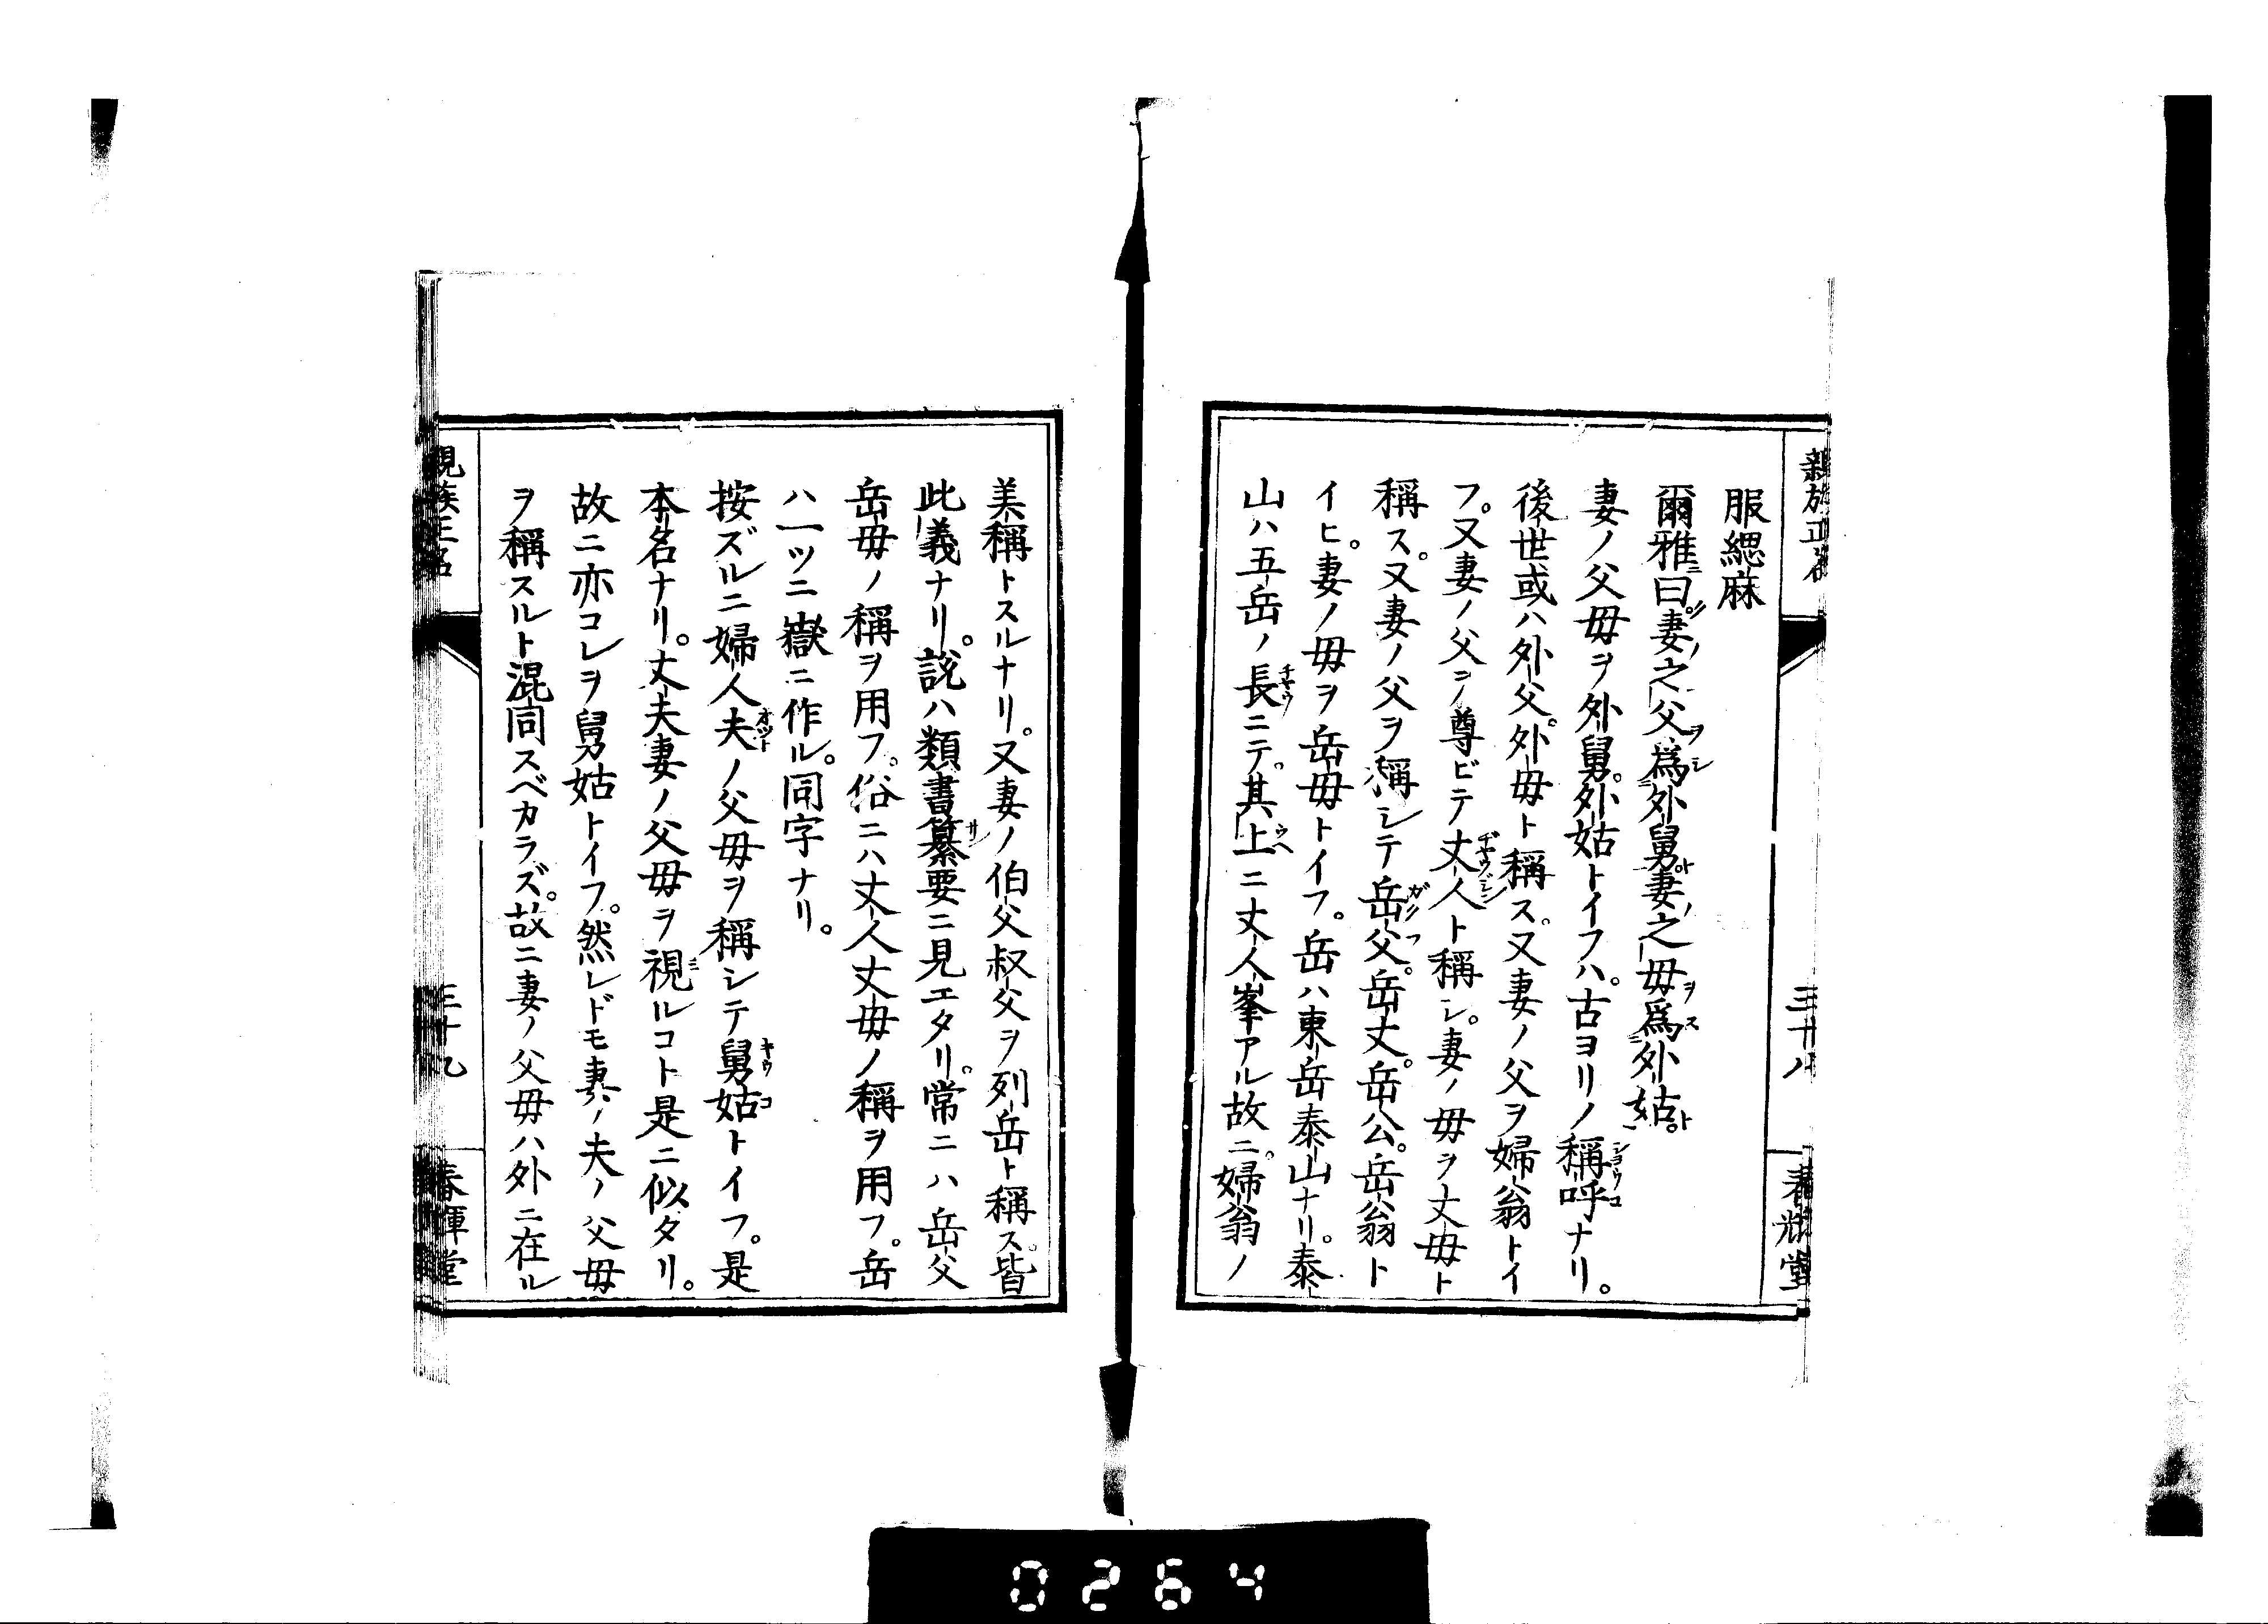 親族正名
三十八
春煇堂
服緦麻
爾雅ニ曰妻ノ之父ヲ爲シ外舅ト妻ノ之母ヲ爲ス外姑ト。
妻ノ父母ヲ外舅。外姑トイフハ。古ヨリノ稱呼ナリ。
後世或ハ外父。外母ト稱ス。又妻ノ父ヲ婦翁トイ
フ。又妻ノ父ヲバ尊ビテ丈人ト稱シ。妻ノ母ヲ丈母ト
稱ス。又妻ノ父ヲ稱シテ岳父。岳丈。岳公。岳翁ト
イヒ。妻ノ母ヲ岳母トイフ。岳ハ東岳泰山ナリ。泰
山ハ五岳ノ長ニテ。其上ニ丈人峯アル故ニ。婦翁ノ
美稱トスルナリ。又妻ノ伯父叔父ヲ列岳ト稱ス。皆
此義ナリ。説ハ類書纂要ニ見エタリ。常ニハ岳父
岳母ノ稱ヲ用フ。俗ニハ丈人丈母ノ稱ヲ用フ。岳
ハ一ツニ嶽ニ作ル。同字ナリ。
按ズルニ婦人夫ノ父母ヲ稱シテ舅姑トイフ。是
本名ナリ。丈夫妻ノ父母ヲ視ルコト是ニ似タリ。
故ニ亦コレヲ舅姑トイフ。然レドモ妻ノ夫ノ父母
ヲ稱スルト混同スベカラズ。故ニ妻ノ父母ハ外ニ在ル
親族正名
三十九
春煇堂
0264